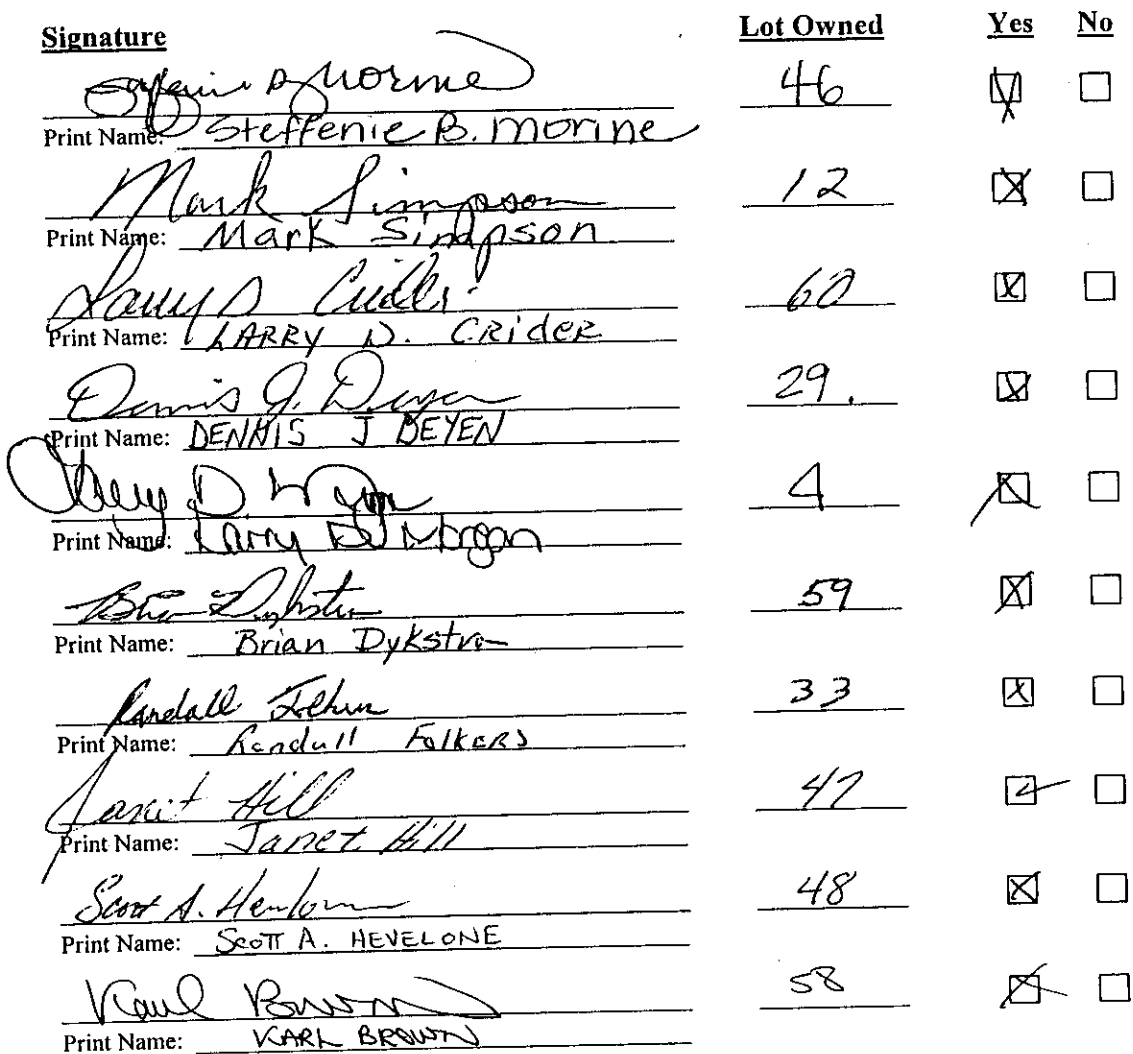 Signature Lot Owned Yes No
Steffenie B Morine 46
Print Name: Steffenie B. Morine
Mark Simpson 12
Print Name: Mark Simpson
Larry D Crider 60
Print Name: LARRY D. CRideR
Dennis J. Deyen 29.
Print Name: DENNIS J DEYEN
Larry D Morgan 4
Print Name: Larry D Morgan
Brian Dykstra 59
Print Name: Brian Dykstra
Randall Folkers 33
Print Name: Randall FolkeRs
Janet Hill 47
Print Name: Janet Hill
Scott A. Hevelone 48
Print Name: SCOTT A. HEVELONE
Karl Brown 58
Print Name: KARL BROWN